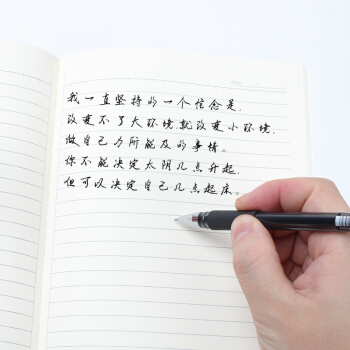 我一直坚持的一个信念是,
改变不了大环境,就改变小环境,
做自己力所能及的事情。
你不能决定太阳几点升起,
但可以决定自己几点起床。